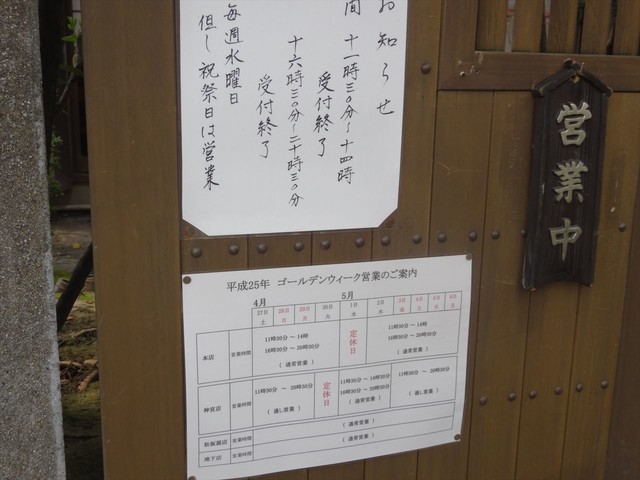 お知らせ
間 十一時三〇分~十四時
受付終了
十六時三〇分~二十時三〇分
受付終了
毎週水曜日
但し祝祭日は営業
営業中
平成25年 ゴールデンウィーク営業のご案内
4月 5月
27日 28日 29日 30日 1日 2日 3日 4日 5日 6日
土 日 月 火 水 木 金 土 日 月
本店 営業時間 11時30分 ～ 14時 16時30分 ～ 20時30分 ( 通常営業 ) 定休日 11時30分 ～ 14時 16時30分 ～ 20時30分 ( 通常営業 )
神宮店 営業時間 11時30分 ～ 20時30分 ( 通し営業 ) 定休日 11時30分 ～ 14時30分 16時30分 ～ 20時30分 ( 通常営業 ) 11時30分 ～ 20時30分 ( 通し営業 )
松坂屋店 営業時間 ( 通常営業 )
地下店 営業時間 ( 通常営業 )